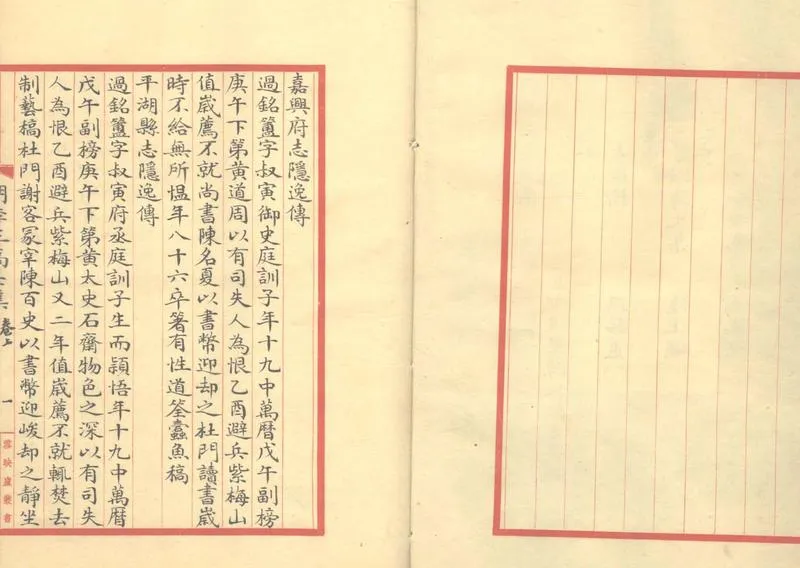 嘉興府志隱逸傳
過銘簠字叔寅御史庭訓子年十九中萬曆戊午副榜
庚午下第黃道周以有司失人為恨乙酉避兵紫梅山
值歲薦不就尚書陳名夏以書幣迎却之杜門讀書歲
時不給無所慍年八十六卒箸有性道筌蠧魚稿
平湖縣志隱逸傳
過銘簠字叔寅府丞庭訓子生而穎悟年十九中萬曆
戊午副榜庚午下第黃太史石齋物色之深以有司失
人為恨乙酉避兵紫梅山又二年值歲薦不就輒焚去
制藝稿杜門謝客冢宰陳百史以書幣迎峻却之靜坐
卷上
一